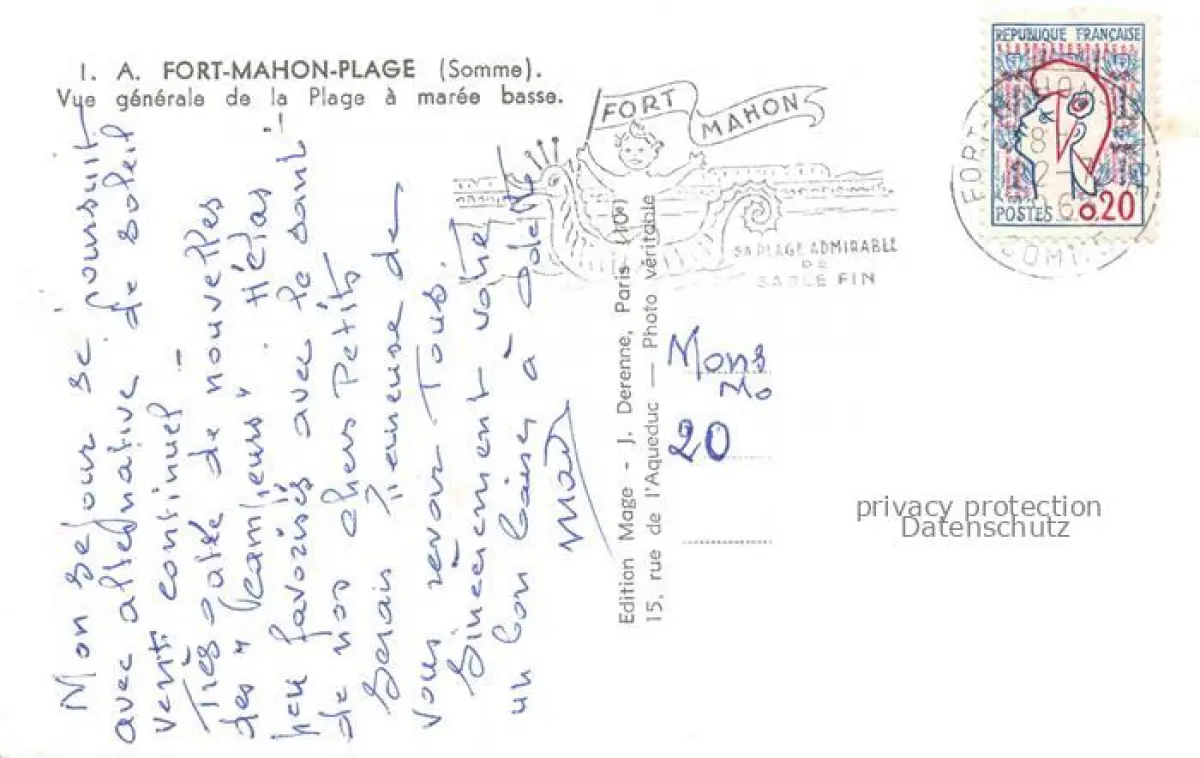 I. A. FORT-MAHON-PLAGE (Somme).
Vue générale de la Plage à marée basse.
Mon séjour se poursuit
avec alternative de soleil
vent continuel -
Très gaie de nouvelles
des " " Hélas -
peu favorisés avec le
de nos chers Petits
Serais heureuse de
vous revoir Tous
Sincèrement votre
un bon baiser à
Edition Mage - J. Derenne, Paris (10e)
15, rue de l'Aqueduc — Photo véritable
FORT MAHON
SA PLAGE ADMIRABLE
DE
SABLE FIN
REPUBLIQUE FRANÇAISE
POSTES 0,20
FORT
Mons
Mo
20
privacy protection
Datenschutz